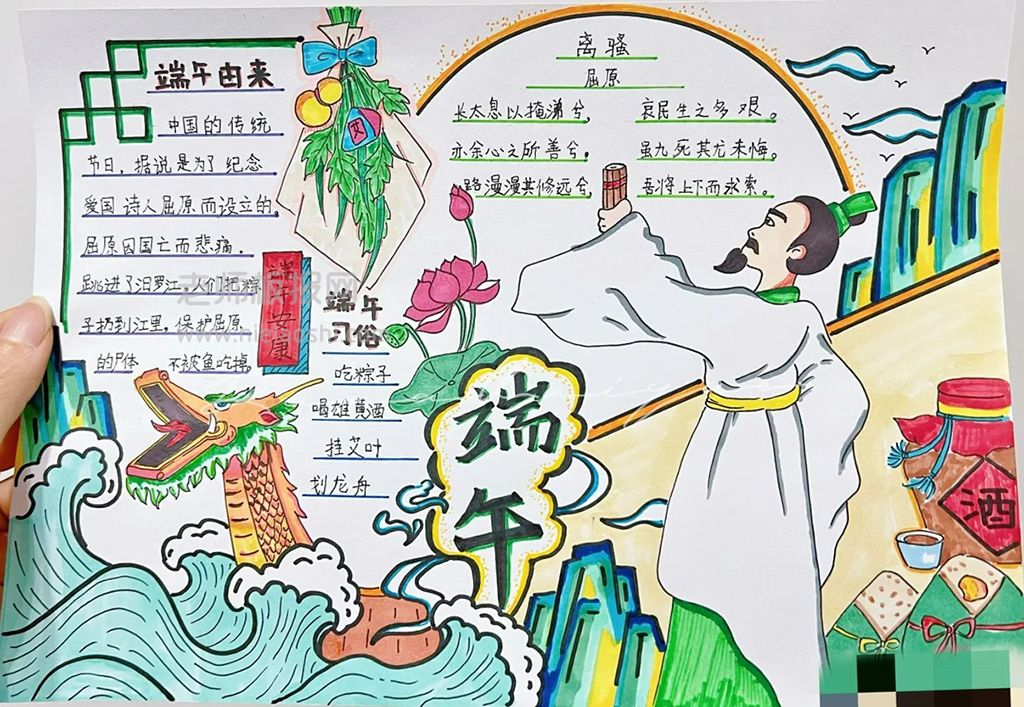 端午由来
中国的传统
节日，据说是为了纪念
爱国诗人屈原而设立的。
屈原因国亡而悲痛．
跳进了汨罗江，人们把粽
子扔到江里，保护屈原
的尸体 不被鱼吃掉。
端午安康
端午
习俗
吃粽子
喝雄黄酒
挂艾叶
划龙舟
端午
离骚
屈原
长太息以掩涕兮， 哀民生之多艰。
亦余心之所善兮， 虽九死其尤未悔。
路漫漫其修远兮， 吾将上下而求索。
酒
老师板报网